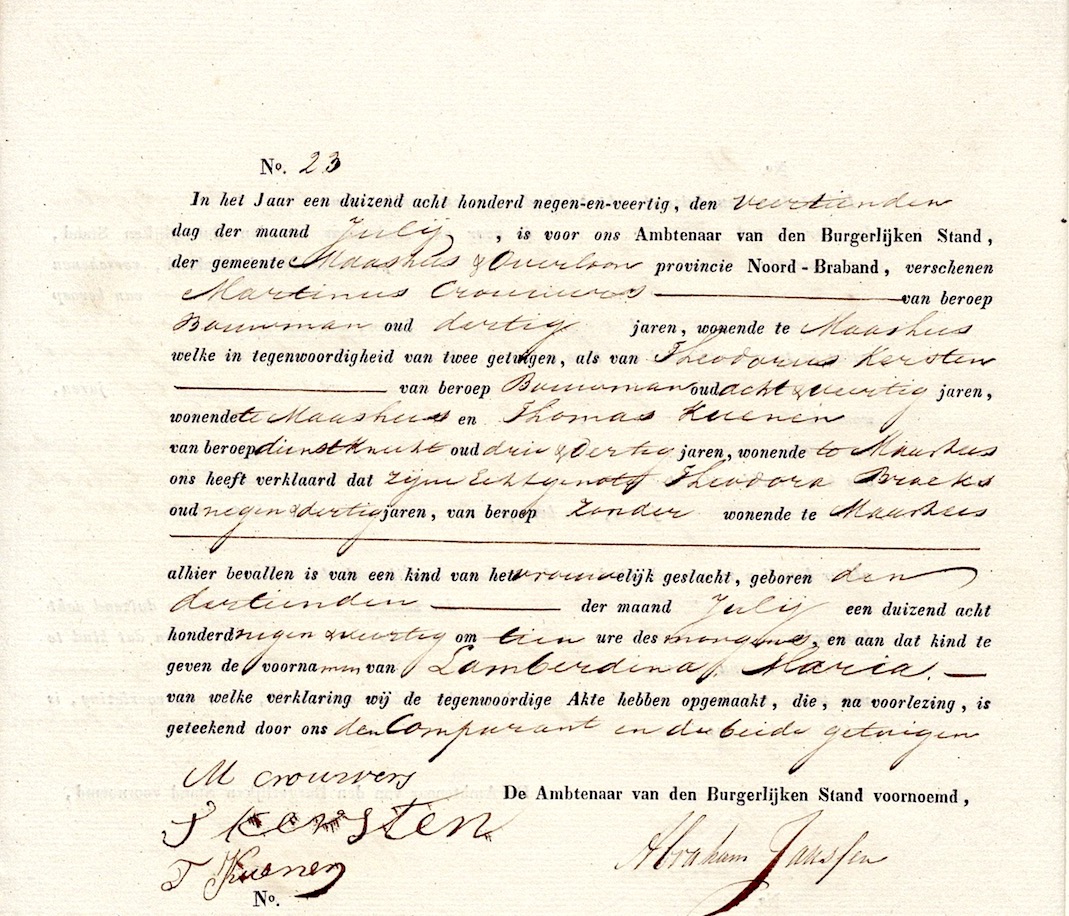 No. 23
In het Jaar een duizend acht honderd negen-en-veertig, den veertienden
dag der maand Julij, is voor ons Ambtenaar van den Burgerlijken Stand,
der gemeente Maashees & Overloon provincie Noord-Braband, verschenen
Martinus Crouwers van beroep
Bouwman oud dertig jaren, wonende te Maashees
welke in tegenwoordigheid van twee getuigen, als van Theodorus Kersten
van beroep Bouwman oud acht & veertig jaren,
wonende te Maashees en Thomas Kuenen
van beroep dienstknecht oud drie & dertig jaren, wonende te Maashees
ons heeft verklaard dat zijne Echtgenote Theodora Broeks
oud negen & dertig jaren, van beroep zonder wonende te Maashees
alhier bevallen is van een kind van het vrouwelijk geslacht, geboren den
dertienden der maand Julij een duizend acht
honderd negen & veertig om tien ure des morgens, en aan dat kind te
geven de voornamen van Lamberdina Maria.
van welke verklaring wij de tegenwoordige Akte hebben opgemaakt, die, na voorlezing, is
geteekend door ons den Comparant en de beide getuigen
M Crouwers
De Ambtenaar van den Burgerlijken Stand voornoemd,
T Kersten
Abraham Janssen
T Kuenen
No.